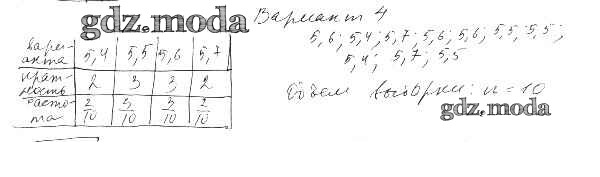 gdz.moda
Вариант 4
5,6; 5,4; 5,7; 5,6; 5,6; 5,5; 5,5;
5,4; 5,7; 5,5
вари-
анта 5,4 5,5 5,6 5,7
крат-
ность 2 3 3 2
часто-
та 2/10 3/10 3/10 2/10
Объем выборки: n = 10
gdz.moda